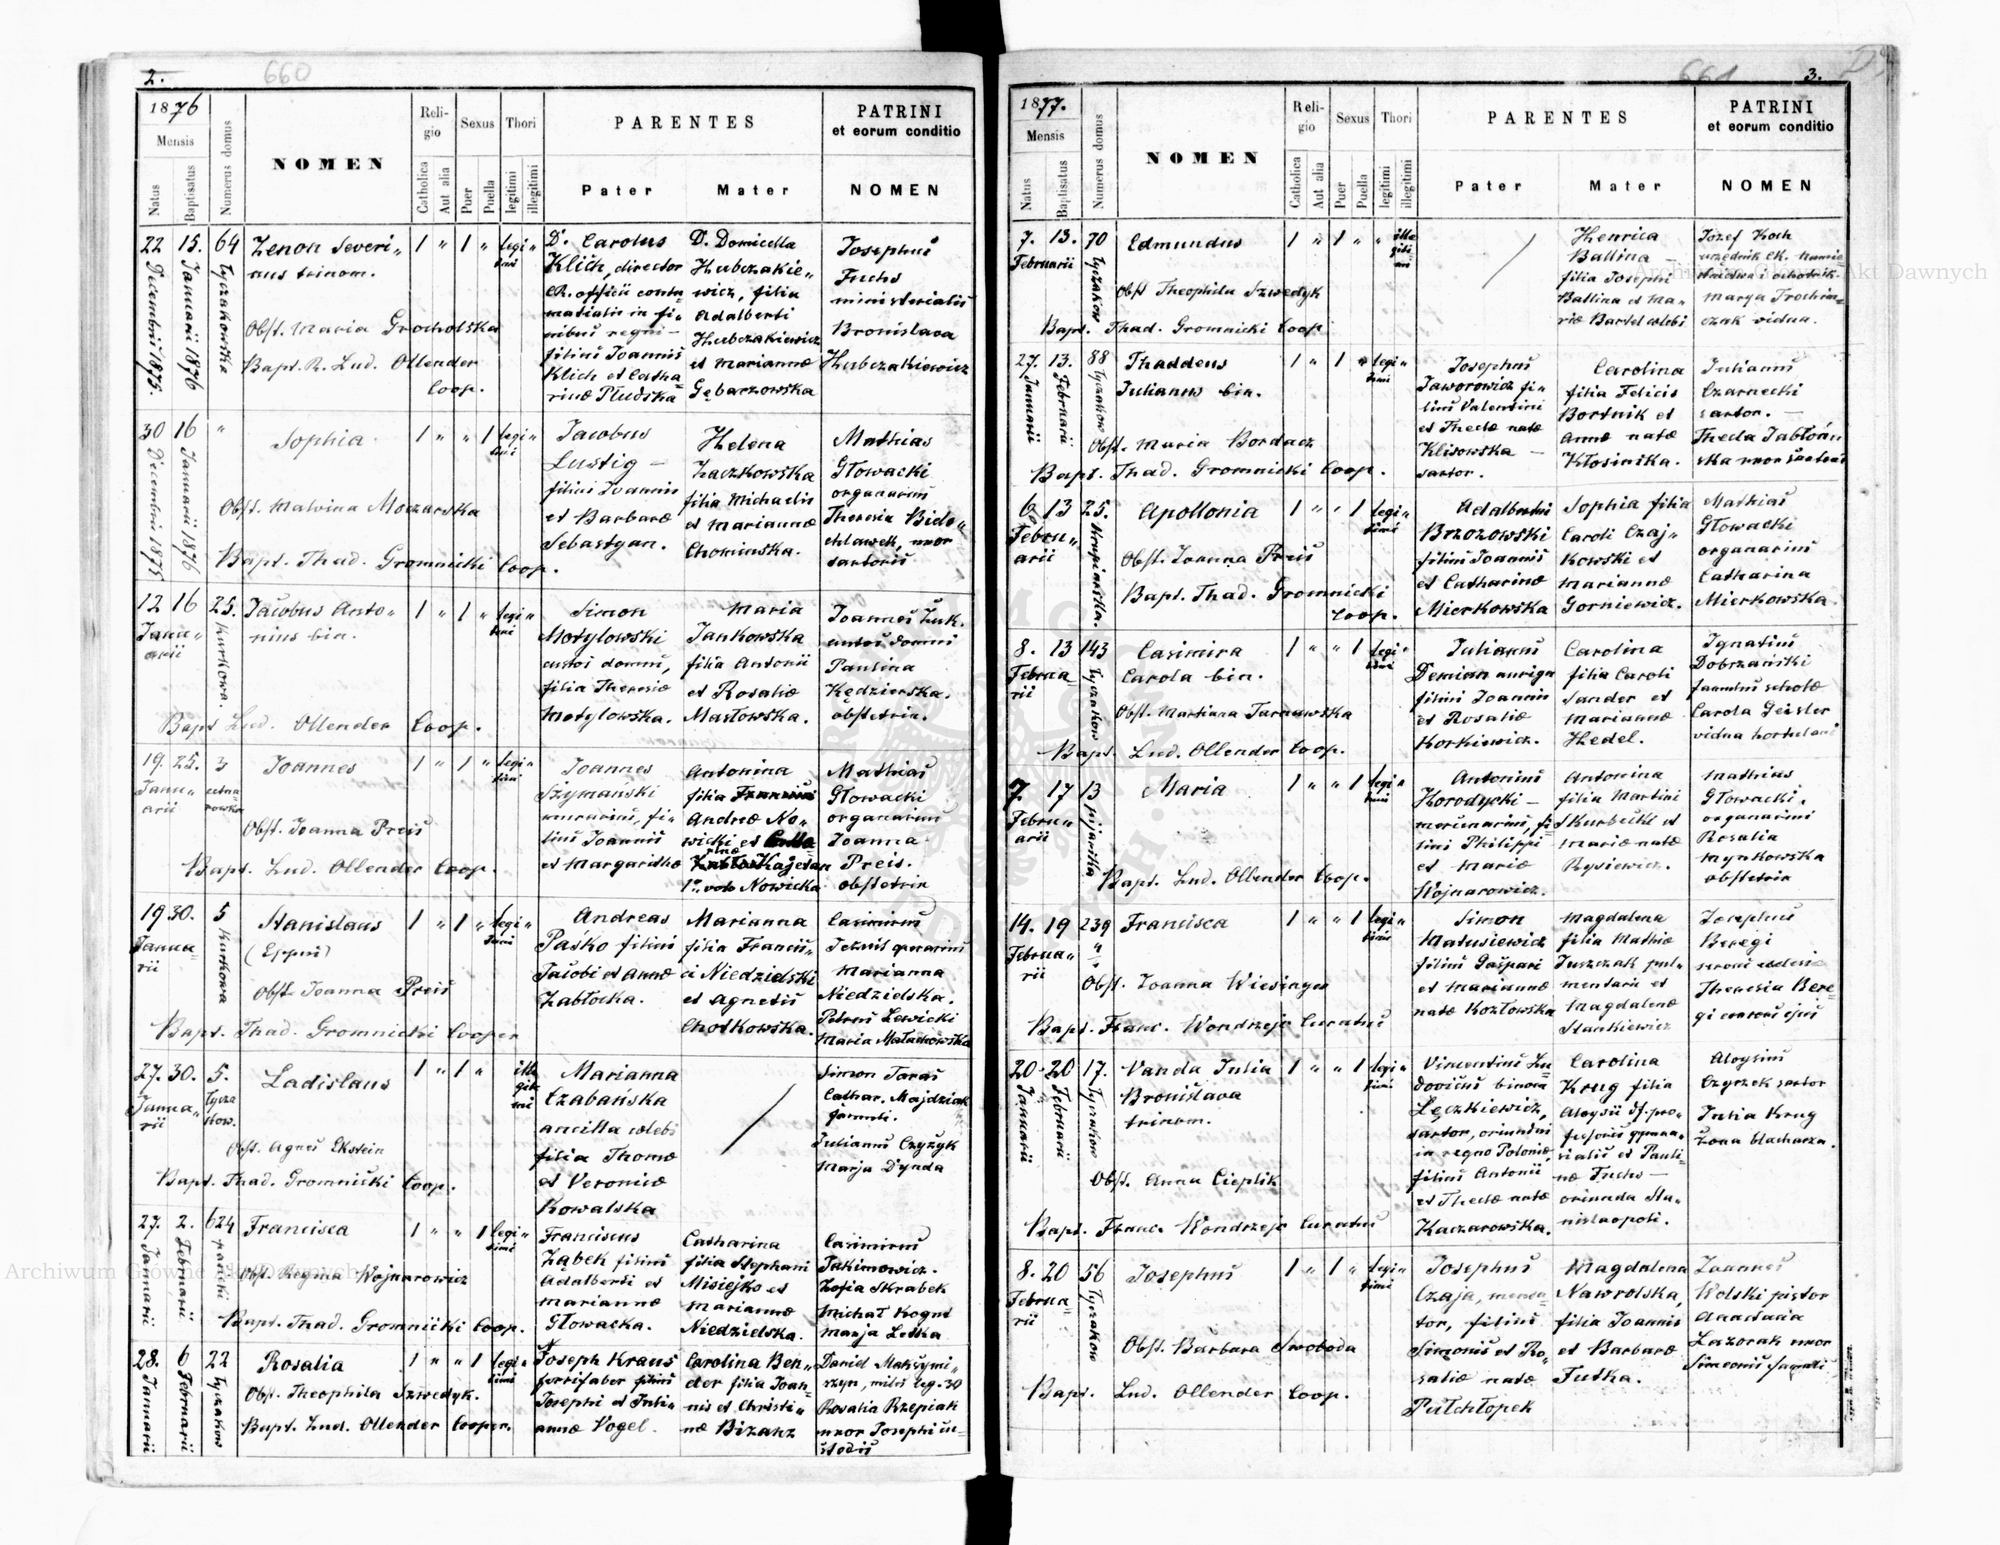 2.
660
1876
Mensis
Natus
Baptisatus
Numerus domus
NOMEN
Religio
Catholica
Aut alia
Sexus
Puer
Puella
Thori
legitimi
illegitimi
PARENTES
Pater
Mater
PATRINI
et eorum conditio
NOMEN
22 Decembris 1875.
15. Januarii 1876
64 Łyczakowska
Zenon Severi„
nus trinom.
Obst. Maria Grocholska
Bapt. R. Lud. Ollender
Coop.
1 „ 1 „ legi„
timi
D. Carolus
Klich, director
filius Joannis
Klich et Catha„
rinæ
D. Domicella
Hubczakie„
wicz, filia
Adalberti
Hubczakiewicz
et Mariannæ
Gębarzowska
Josephus
Fuchs
ministerialis
Bronislava
Hubczakiewicz
30 Decembris 1875
16 Januarii 1876
„
Sophia
Obst. Malvina Moczarska
Bapt. Thad. Gromnicki Coop.
1 „ „ 1 legi„
timi
Jacobus
Lustig —
filius Joannis
et Barbaræ
Sebastyan.
Helena
Zaczkowska
filia Michaelis
et Mariannæ
Chominska.
Mathias
Głowacki
organarius
Theresia
uxor
sartoris
12 Janu„
arii
16
25. Kurkowa.
Jacobus Anto„
nius bin.
Bapt Lud. Ollender Coop.
1 „ 1 „ legi„
timi
Simon
Motylowski
custos domus,
filia Theresiæ
Motylowska.
Maria
Jankowska
filia Antonii
et Rosaliæ
Masłowska.
Joannes Żuk.
custos domus
Paulina
Kędzierska.
obstetrix.
19. Janu„
arii
25.
3
Joannes
Obst. Joanna Preis
Bapt. Lud. Ollender Coop.
1 „ 1 „ legi„
timi
Joannes
Szymański
murarius, fi„
lius Joannis
et Margarithæ
Antonina
filia
Andreæ No„
wicki et
Kajetan
1º voto Nowicka
Mathias
Głowacki
organarius
Joanna
Preis.
obstetrix
19 Janua„
rii
30.
5 Kurkowa
Stanislaus
Obst. Joanna Preis
Bapt. Thad. Gromnicki Cooper
1 „ 1 „ legi„
timi
Andreas
Paśko filius
Jacobi et Annæ
Zabłocka.
Marianna
filia Francis„
ci Niedzielski
et Agnetis
Chotkowska.
Casimirus
Marianna
Niedzielska.
Petrus Lewicki
Maria Małachowska
27. Janua„
rii
30.
5.
Łycza
kow.
Ladislaus
Obst. Agnes Ekstein
Bapt. Thad. Gromnicki Coop.
1 „ 1 „ ille
giti
mi
Marianna
Czabańska
ancilla cœlebs
filia Thomæ
et Veronicæ
Kowalska
Simon Taras
Cathar. Majdziak
famuli.
Julianus Czyżyk
Marja Dynda
27. Januarii
2. Februarii
624
Francisca
Obst. Regina Wojnarowicz
Bapt. Thad. Gromnicki Coop.
1 „ „ 1 legi„
timi
Franciscus
Ząbek filius
Adalberti et
Mariannæ
Głowacka.
Catharina
filia Stephani
Misiejko et
Mariannæ
Niedzielska.
Casimirus
Jakimowicz.
Zofia Skrabek
Michał Kogut
Marja Letka
28. Januarii
6 Februarii
22 Łyczaków
Rosalia
Obst. Theophila Szwedyk.
Bapt. Lud. Ollender Cooper.
1 „ „ 1 legi„
timi
Joseph Kraus
filius
Josephi et Juli„
annæ Vogel.
Carolina Ben„
der filia Joan„
nis et Christi„
næ Bizanz
Daniel Maksymi„
szyn, miles leg. 30
Rosalia Rzepiak
uxor Josephi cu„
stodis
3.
661
1877.
Mensis
Natus
Baptisatus
Numerus domus
NOMEN
Religio
Catholica
Aut alia
Sexus
Puer
Puella
Thori
legitimi
illegitimi
PARENTES
Pater
Mater
PATRINI
et eorum conditio
NOMEN
7. Februarii
13.
70 Łyczaków
Edmundus
Obst Theophila Szwedyk
Bapt. Thad. Gromnicki Coop
1 „ 1 „ „ ille
giti
mi
Henrica
Ballina —
filia Josephi
Ballina et Ma„
riæ Bartel cœlebs
Jozef Koch
Marya Trochim„
czak vidua.
27. Januarii
13. Februarii
88 Łyczakow
Thaddeus
Julianus bin.
Obst. Maria Bordacz
Bapt. Thad. Gromnicki Coop.
1 „ 1 „ legi„
timi
Josephus
Jaworowicz fi„
lius Valentini
et Theclæ natæ
Klisowska —
sartor.
Carolina
filia Felicis
Bortnik et
Annæ natæ
Kłosinska.
Julianus
Czarnecki
sartor. —
Thecla Jabłoń
ska uxor
6 Febru„
arii
13
25. Krupiarska.
Apollonia
Obst. Joanna Preis
Bapt. Thad. Gromnicki
Coop.
1 „ „ 1 legi„
timi
Adalbertus
Brzozowski
filius Joannis
et Catharinæ
Mierkowska
Sophia filia
Caroli Czaj„
kowski et
Mariannæ
Gorniewicz.
Mathias
Głowacki
organarius
Catharina
Mierkowska.
8. Februa„
rii
13
143 Łyczakow
Casimira
Carola bin.
Obst. Martiana Tarnawska
Bapt. Lud. Ollender Coop.
1 „ „ 1 legi„
timi
Julianus
Demian auriga
filius Joannis
et Rosaliæ
Korkiewicz.
Carolina
filia Caroli
Sander et
Mariannæ
Hedel.
Ignatius
Dobrzański
famulus scholæ
Carola Geisler
vidua hortulani
7. Febru„
arii
17
13 Pijarska
Maria
Bapt. Lud. Ollender Coop.
1 „ „ 1 legi„
timi
Antonius
Horodycki —
mercenarius, fi„
lius Philippi
et Mariæ
Wojnarowicz.
Antonina
filia Martini
Skurbeiki et
Mariæ natæ
Rysiewicz.
Mathias
Głowacki.
organarius
Rosalia
Mynkowska
obstetrix
14. Februa„
rii
19
239
Francisca
Obst. Joanna Wiesinger
Bapt. Franc. Wondrzejc Curatus
1 „ „ 1 legi„
timi
Simon
Matusiewicz
filius Gaspari
et Mariannæ
natæ Kozłowska
Magdalena
filia Mathiæ
Juszczak pul„
mentarii et
Magdalenæ
Stankiewicz
Josephus
Beregi
Theresia Bere„
gi consors ejus
20. Januarii
20 Februarii
17. Łyczakow
Vanda Julia
Bronislava
trinom.
Obst. Anna Cieplik
Bapt. Franc. Wondrzejc Curatus
1 „ „ 1 legi„
timi
Vincentius Lu„
dovicus binom.
Łęczkiewicz,
sartor, oriundus
in regno Poloniæ,
filius Antonii
et Theclæ natæ
Kaczarowska.
Carolina
Krug filia
Aloysii pro„
fessoris gymna„
sialis et Pauli„
næ Fuchs —
oriunda Sta„
nislaopoli.
Aloysius
Ozyrzek sartor
Julia Krug
żona blacharza.
8. Februa„
rii
20
56 Łyczakow
Josephus
Obst. Barbara Swoboda
Bapt. Lud. Ollender Coop.
1 „ 1 „ legi„
timi
Josephus
Czaja,
filius
Simonis et Ro„
saliæ natæ
Pułchłopek
Magdalena
Nawrolska,
filia Joannis
et Barbaræ
Futka.
Joannes
Wolski pistor
Anastasia
Lazorak uxor
Simeonis
Archiwum Główne Akt Dawnych
Archiwum Główne Akt Dawnych